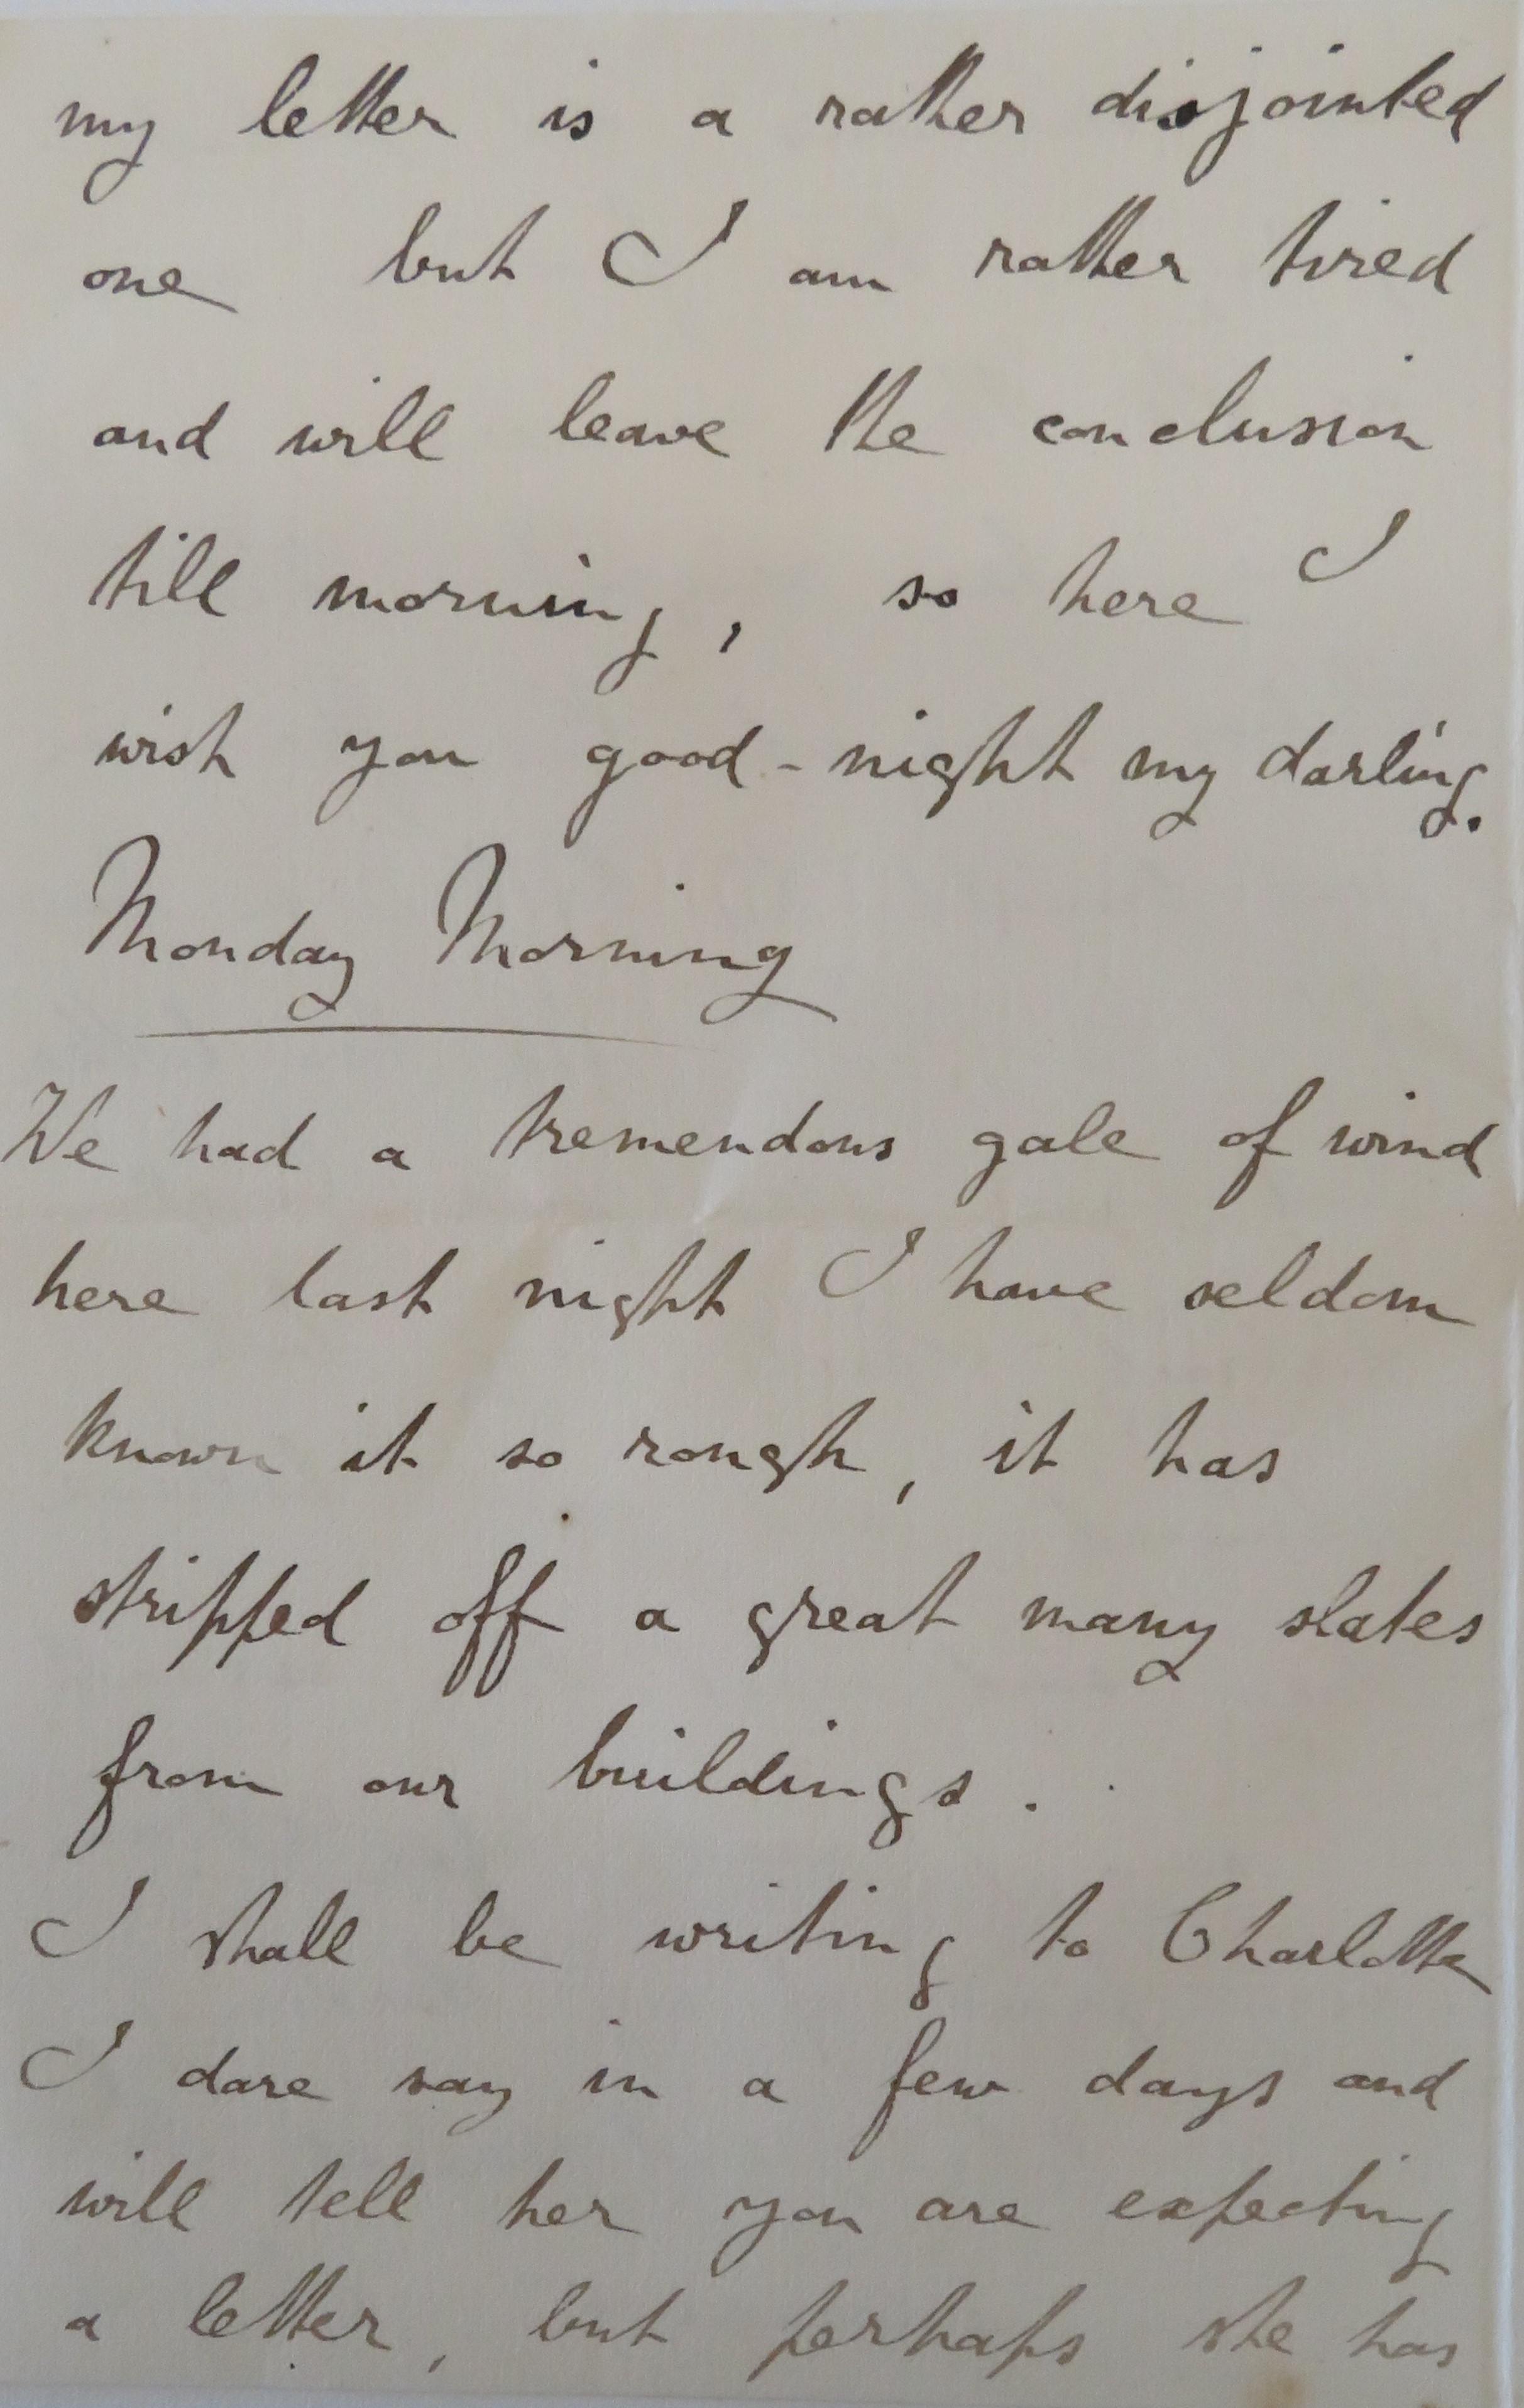 my letter is a rather disjointed
one but I am rather tired
and will leave the conclusion
till morning, so here I
wish you good-night my darling.
Monday Morning
We had a tremendous gale of wind
here last night I have seldom
known it so rough, it has
stripped off a great many slates
from our buildings.
I shall be writing to Charlotte
I dare say in a few days and
will tell her you are expecting
a letter, but perhaps she has